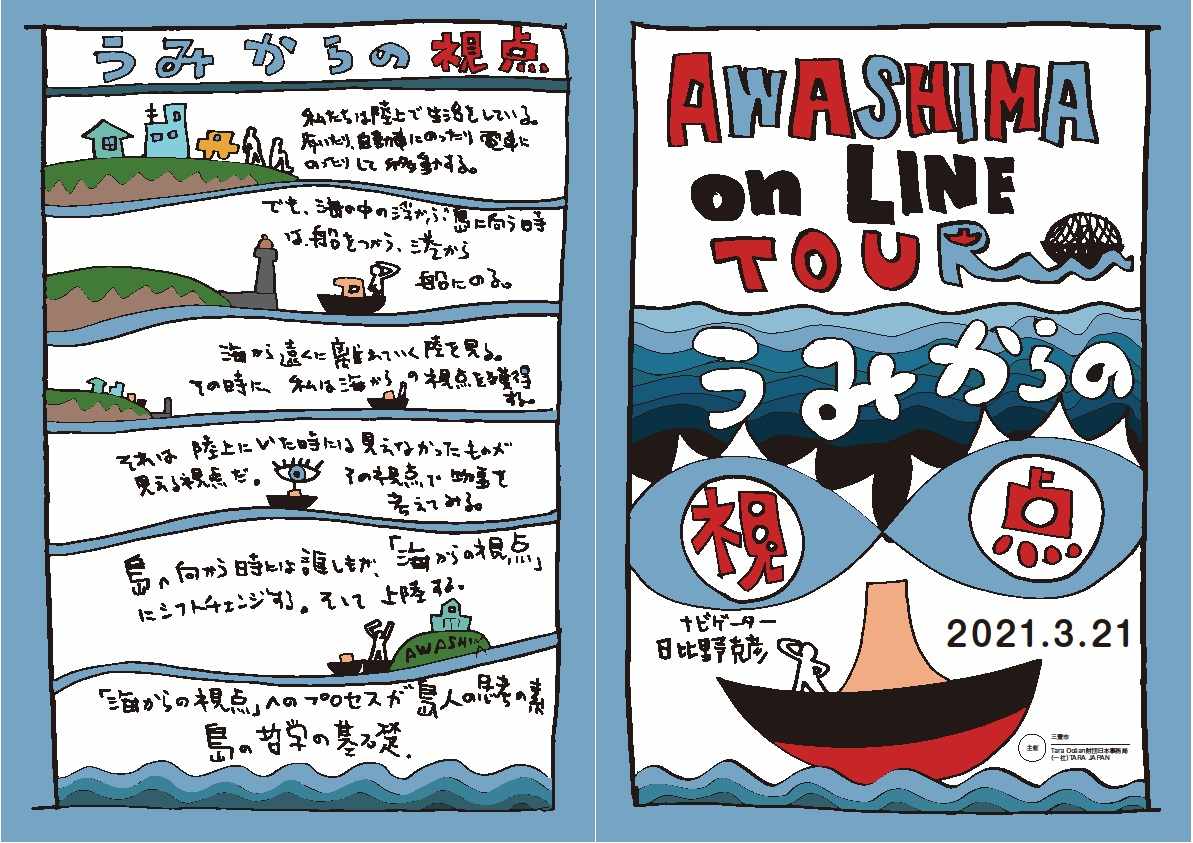 うみからの視点
私たちは陸上で生活をしている。
歩いたり、自動車にのったり電車に
のったりして移動する。
でも、海の中の浮かぶ島に向う時
は、船をつかう、港から
船にのる。
海から遠くに離れていく陸を見る。
その時に、私は海からの視点を獲得
する。
それは陸上にいた時には見えなかったものが
見える視点だ。その視点で物事を
考えてみる。
島へ向かう時には誰しもが、「海からの視点」
にシフトチェンジする。そして上陸する。
AWASHIMA
「海からの視点」へのプロセスが島人の思考の素
島の哲学の基礎.
AWASHIMA
on LINE
TOUR
うみからの
視点
2021.3.21
ナビゲーター
日比野克彦
主催
三豊市
Tara Océan財団日本事務局
(一社)TARA JAPAN